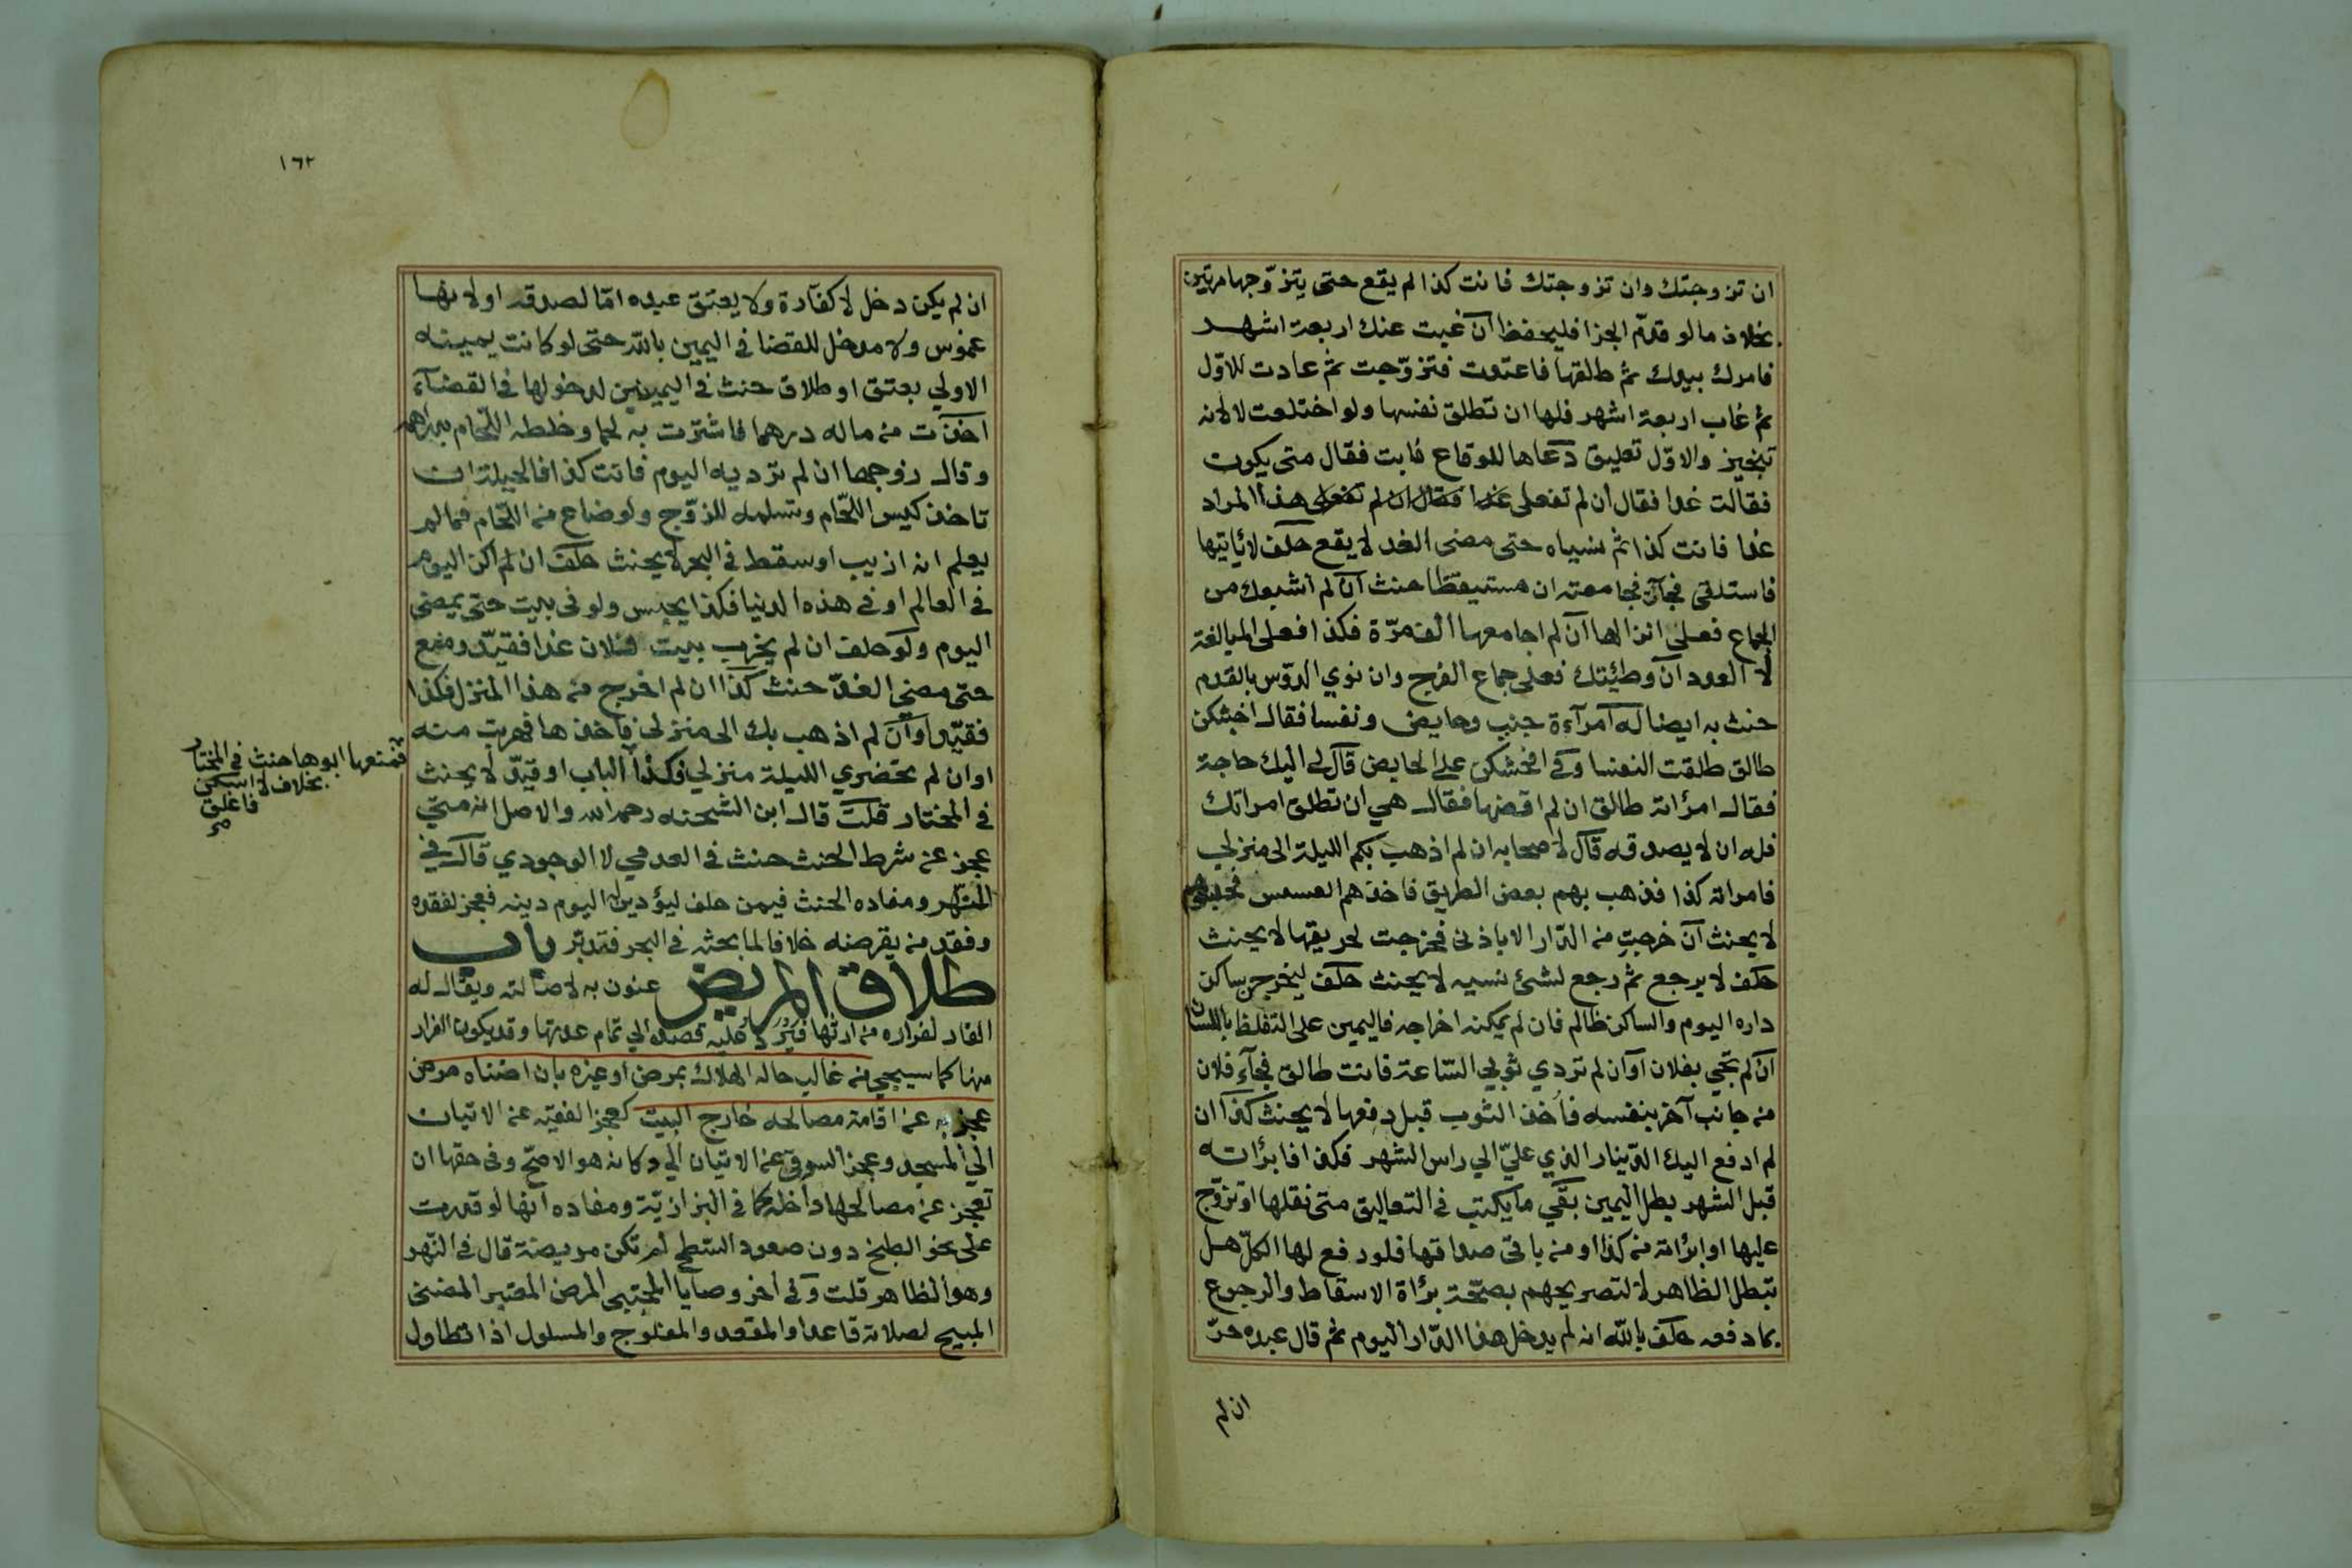 ان تزوجتك وان تزوجتك فانت كذا لم يقع حتى يتزوّجها مرتين
بخلاف ما لو قدّم الجزا فليحفظ ان غبت عنك اربعة اشهر
فامرك بيدك ثم طلقها فاعتدت فتزوّجت ثم عادت للاوّل
ثم غاب اربعة اشهر فلها ان تطلق نفسها ولو اختلعت لا لانه
تنجيز والاوّل تعليق دعاها للوقاع فابت فقال متى يكون
فقالت غدا فقال ان لم تفعلى غدا فقال ان لم تفعلى هذا المراد
غدا فانت كذا ثم نسياه حتى مضى الغد لا يقع حلف لا ياتيها
فاستلقى فجآت فجامعته ان مستيقظا حنث ان لم اشبعك من
الجماع فعلى انزالها ان لم اجامعها الف مرّة فكذا فعلى المبالغة
لا العدد ان وطئتك فعلى جماع الفرج وان نوي الدّوس بالقدم
حنث به ايضا له امرآءة جنب وحايض ونفسا فقال اخبثكن
طالق طلقت النفسا وفي افحشكن على الحايض قال لي اليك حاجة
فقال امرأته طالق ان لم اقضها فقال هي ان تطلق امراتك
فله ان لا يصدقه قال لاصحابه ان لم اذهب بكم الليلة الى منزلي
فامراته كذا فذهب بهم بعض الطريق فاخذهم العسس فحبسهم
لا يحنث ان خرجت من الدّار الا باذنى فخرجت لحريقها لا يحنث
حلف لا يرجع ثم رجع لشئ نسيه لا يحنث حلف ليخرجن ساكن
داره اليوم والساكن ظالم فان لم يمكنه اخراجه فاليمين على التلفظ باللسان
ان لم تجي بفلان اوان لم تردي ثوبي السّاعة فانت طالق فجآء فلان
من جانب آخر بنفسه فاخذ الثوب قبل دفعها لا يحنث كذا ان
لم ادفع اليك الدّينار الذي عليّ الي راس الشهر فكذا فابرأته
قبل الشهر بطل اليمين بقي ما يكتب في التعاليق متى نقلها او تزوّج
عليها او ابرأته من كذا او من باقى صداقها فلو دفع لها الكلّ هل
تبطل الظاهر لا لتصريحهم بصحّة برأة الاسقاط والرجوع
بما دفعه حلف بالله انه لم يدخل هذا الدّار اليوم ثم قال عبده حرّ
ان لم
١٦٢
ان لم يكن دخل لا كفّارة ولا يعتق عبده امّا لصدقه او لانها
غموس ولا مدخل للقضا في اليمين بالله حتى لو كانت يمينه
الاولي بعتق او طلاق حنث في اليمينين لدخولها في القضآء
اخذت من ماله درهما فاشترت به لحما وخلطه اللّحام بدراهمه
وقال زوجها ان لم ترديه اليوم فانت كذا فالحيلة ان
تاخذ كيس اللّحام وتسلمه للزّوج ولو ضاع من اللّحام فما لم
يعلم انه اذيب او سقط في البحر لا يحنث حلف ان لم اكن اليوم
في العالم او في هذه الدنيا فكذا يحبس ولو في بيت حتى يمضى
اليوم ولو حلف ان لم يخرب بيت فلان غدا فقيّد ومنع
حتى مضي الغدّ حنث كذا ان لم اخرج من هذا المنزل فكذا
فقيّد او ان لم اذهب بك الى منزلي فاخذها فهربت منه
او ان لم تحضري الليلة منزلي فكذا الباب او قيّد لا يحنث
في المختار قلت قال ابن الشحنه رحمه الله والاصل انه متي
عجز عن شرط الحنث حنث في العدمي لا الوجودي قال في
النّهر ومفاده الحنث فيمن حلف ليؤدين اليوم دينه فعجز لفقره
وفقد من يقرضه خلافا لما بحثه في البحر فتدبّر باب
طلاق المريض عنون به لاصالته ويقال له
الفار لفراره من ارثها فيُرد عليه قصده الي تمام عدتها وقد يكون الفرار
منها كما سيجي من غالب حاله الهلاك بمرض او غيره بان اضناه مرض
عجز به عن اقامة مصالحه خارج البيت كعجز الفقيه عن الاتيان
الي المسجد وعجز السوقي عن الاتيان الي دكانه هو الاصحّ وفي حقها ان
تعجز عن مصالحها داخله كما في البزازيّة ومفاده انها لو قدرت
على نحو الطبخ دون صعود السّطح لم تكن مريضة قال في النّهر
وهو الظاهر قلت وفي آخر وصايا المجتبى المرض المعتبر المضنى
المبيح لصلاته قاعدا والمقعد والمفلوج والمسلول اذا تطاول
فمنعها ابوها حنث في المختار
بخلاف لا اسكن
فاغلق